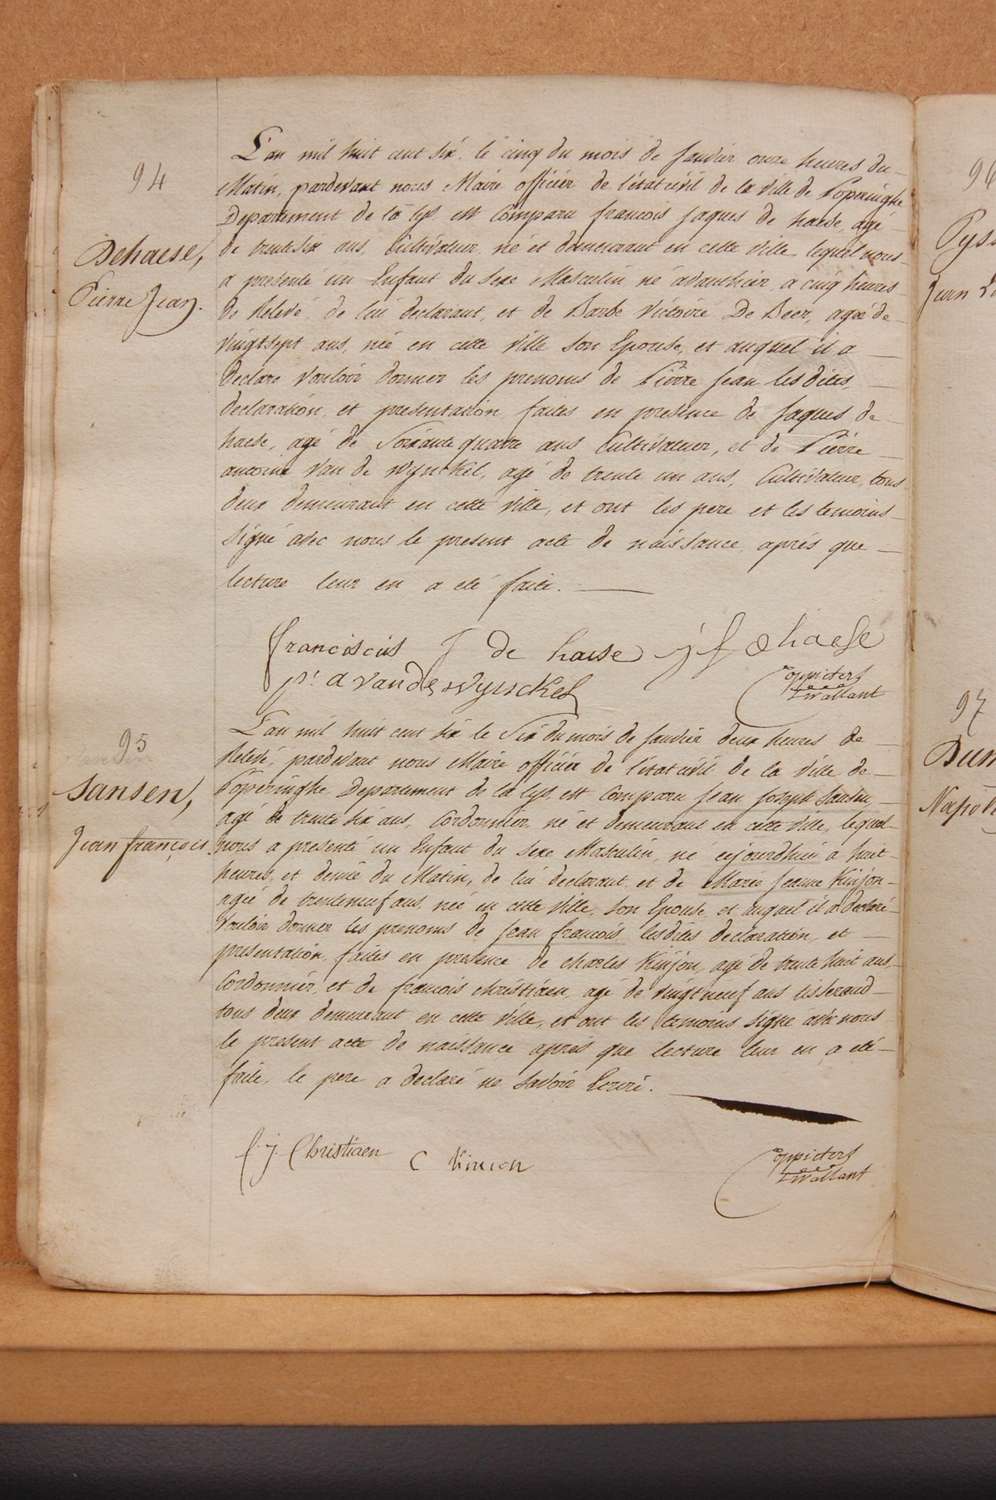 94
Dehaese,
Pierre Jean.
L'an mil huit cent six, le cinq du mois de Janvier onze heures du
Matin, pardevant nous Maire officier de l'état civil de la ville de Poperinghe
Departement de la lys, est Comparu francois Jaques de haese, agé
de trente six ans, Cultivateur, né et demeurant en cette ville, lequel nous
a presenté un Enfant du sexe Masculin né avanthier, a cinq heures
de Relevé, de lui declarant, et de Barbe Victoire De Beer, agée de
vingtsept ans, née en cette ville son Epouse, et auquel il a
declaré vouloir donner les prenoms de Pierre Jean, les dites
declaration et presentation faites en presence de Jaques de
haese, agé de Soixante quatre ans Cultivateur, et de Pierre
antoine Van de Wynckel, agé de trente un ans, Cultivateur, tous
deux demeurant en cette ville, et ont les pere et les temoins
signé avec nous le present acte de naissance, aprés que
lecture leur en a eté faite.
franciscus J de haese j f Dhaese
pr. a vande wynckel
95
Sansen,
Jean françois.
L'an mil huit cent six le Six du mois de Janvier deux heures de
Relevé, pardevant nous Maire officier de l'état civil de la ville de
Poperinghe Departement de la lys, est Comparu Jean Joseph Sansen,
agé de trente six ans, Cordonnier né et demeurant en cette ville, lequel
nous a presenté un Enfant du sexe Masculin, né cejourdhui a huit
heures et demie du Matin, de lui declarant et de Marie Jeanne Kinjon
agée de trenteneuf ans, née en cette ville, son Epouse et auquel il a declaré
vouloir donner les prenoms de Jean francois, lesdites declaration et
presentation faites en presence de Charles Kinjon, agé de trente huit ans
Cordonnier, et de francois Christiaen, agé de vingt neuf ans tisserand
tous deux demeurant en cette ville, et ont les temoins signé avec nous
le present acte de naissance aprés que lecture leur en a eté
faite, le pere a declaré ne savoir Ecrire.
f. j. Christiaen C Kinion
96
97